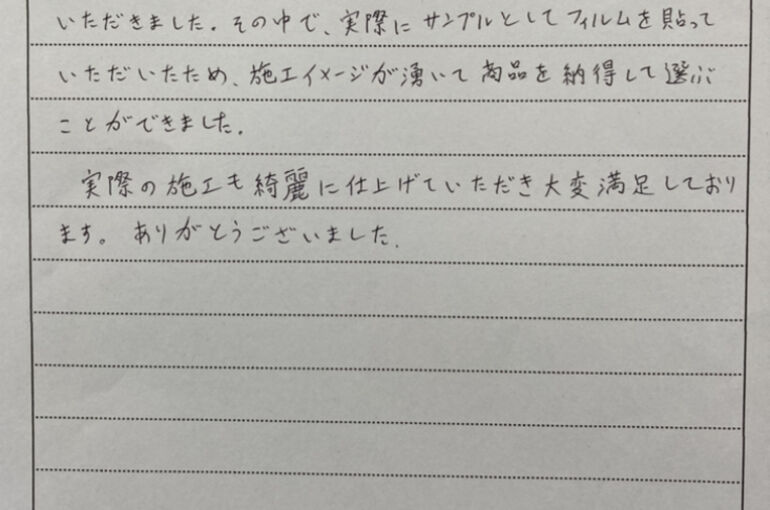 いただきました。その中で、実際にサンプルとしてフィルムを貼って
いただいたため、施工イメージが湧いて商品を納得して選ぶ
ことができました。
実際の施工も綺麗に仕上げていただき大変満足しており
ます。ありがとうございました。